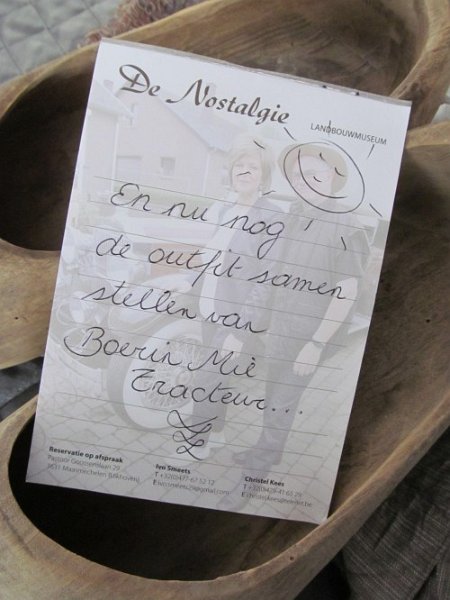 De Nostalgie
LANDBOUWMUSEUM
En nu nog
de outfit samen
stellen van
Boerin Mië
Tracteur...
Reservatie op afspraak
Pastoor Goossenslaan 29
3631 Maasmechelen (Eikhoven)
Ivo Smeets
Christel Kees